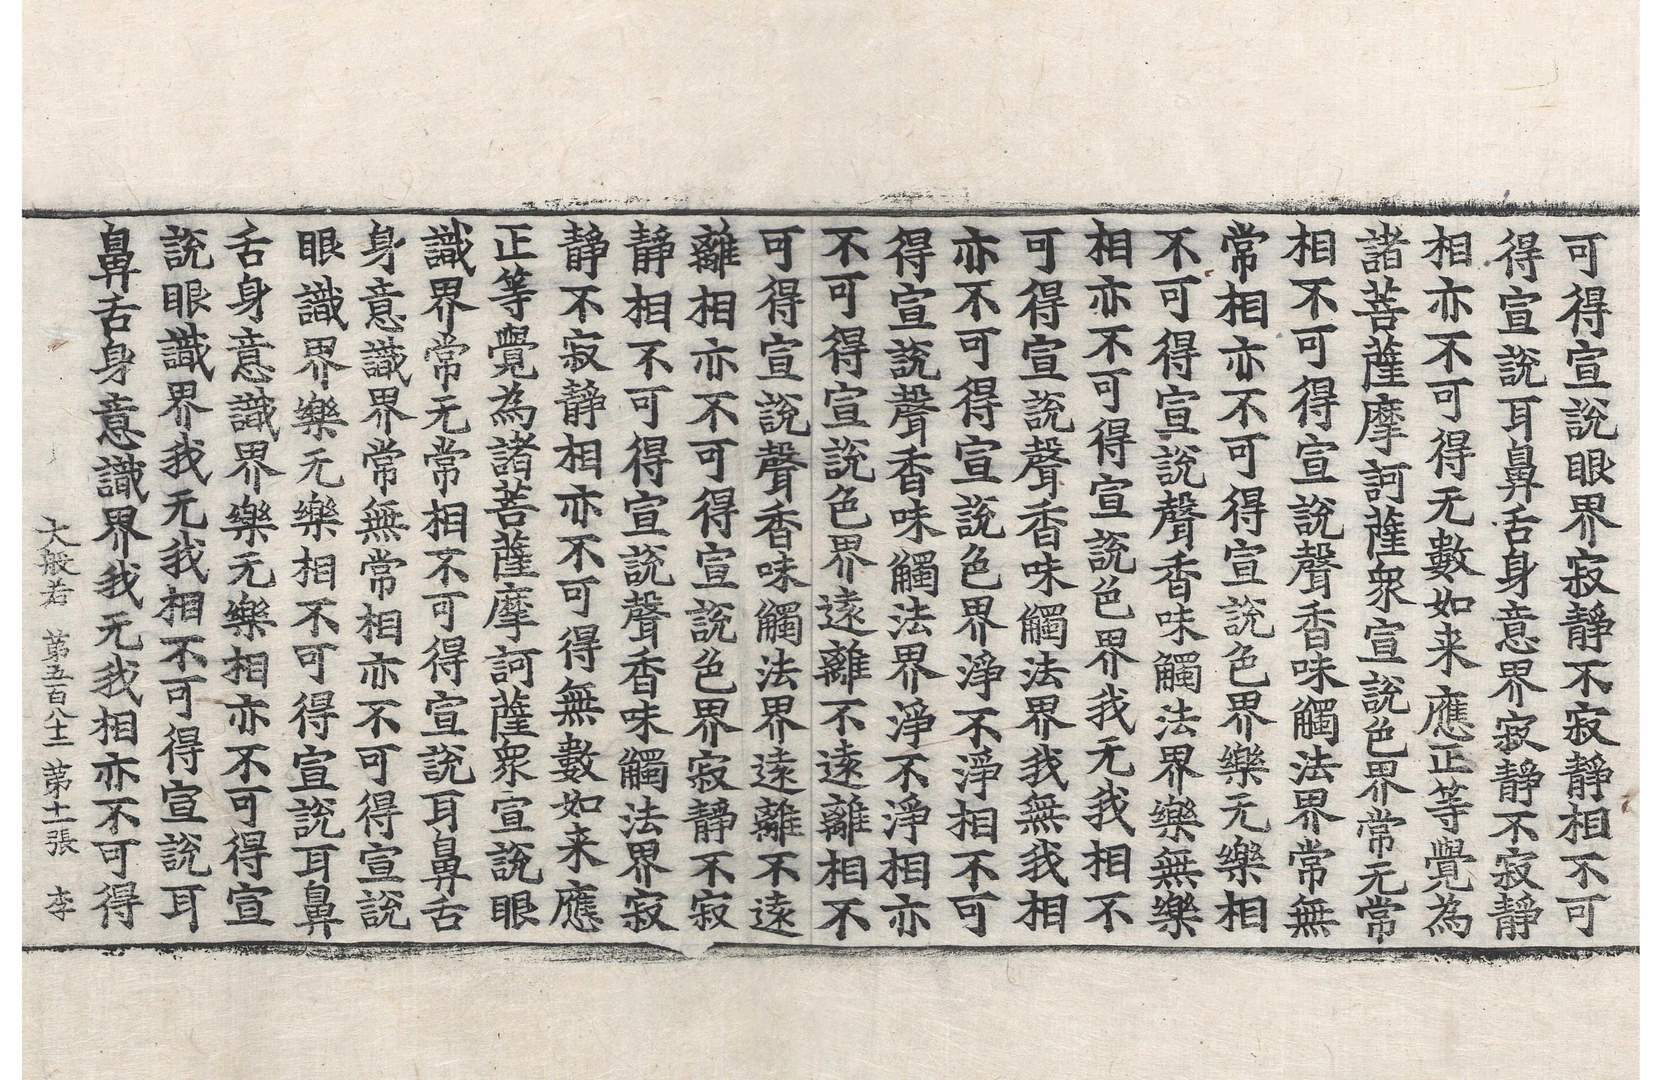 可得宣說眼界寂靜不寂靜相不可
得宣說耳鼻舌身意界寂靜不寂靜
相亦不可得无數如来應正等覺為
諸菩薩摩訶薩衆宣說色界常无常
相不可得宣說聲香味觸法界常無
常相亦不可得宣說色界樂无樂相
不可得宣說聲香味觸法界樂無樂
相亦不可得宣說色界我无我相不
可得宣說聲香味觸法界我無我相
亦不可得宣說色界淨不淨相不可
得宣說聲香味觸法界淨不淨相亦
不可得宣說色界遠離不遠離相不
可得宣說聲香味觸法界遠離不遠
離相亦不可得宣說色界寂靜不寂
靜相不可得宣說聲香味觸法界寂
靜不寂靜相亦不可得無數如来應
正等覺為諸菩薩摩訶薩衆宣說眼
識界常无常相不可得宣說耳鼻舌
身意識界常無常相亦不可得宣說
眼識界樂无樂相不可得宣說耳鼻
舌身意識界樂无樂相亦不可得宣
說眼識界我无我相不可得宣說耳
鼻舌身意識界我无我相亦不可得
大般若 第五百八十二 第十一張 李